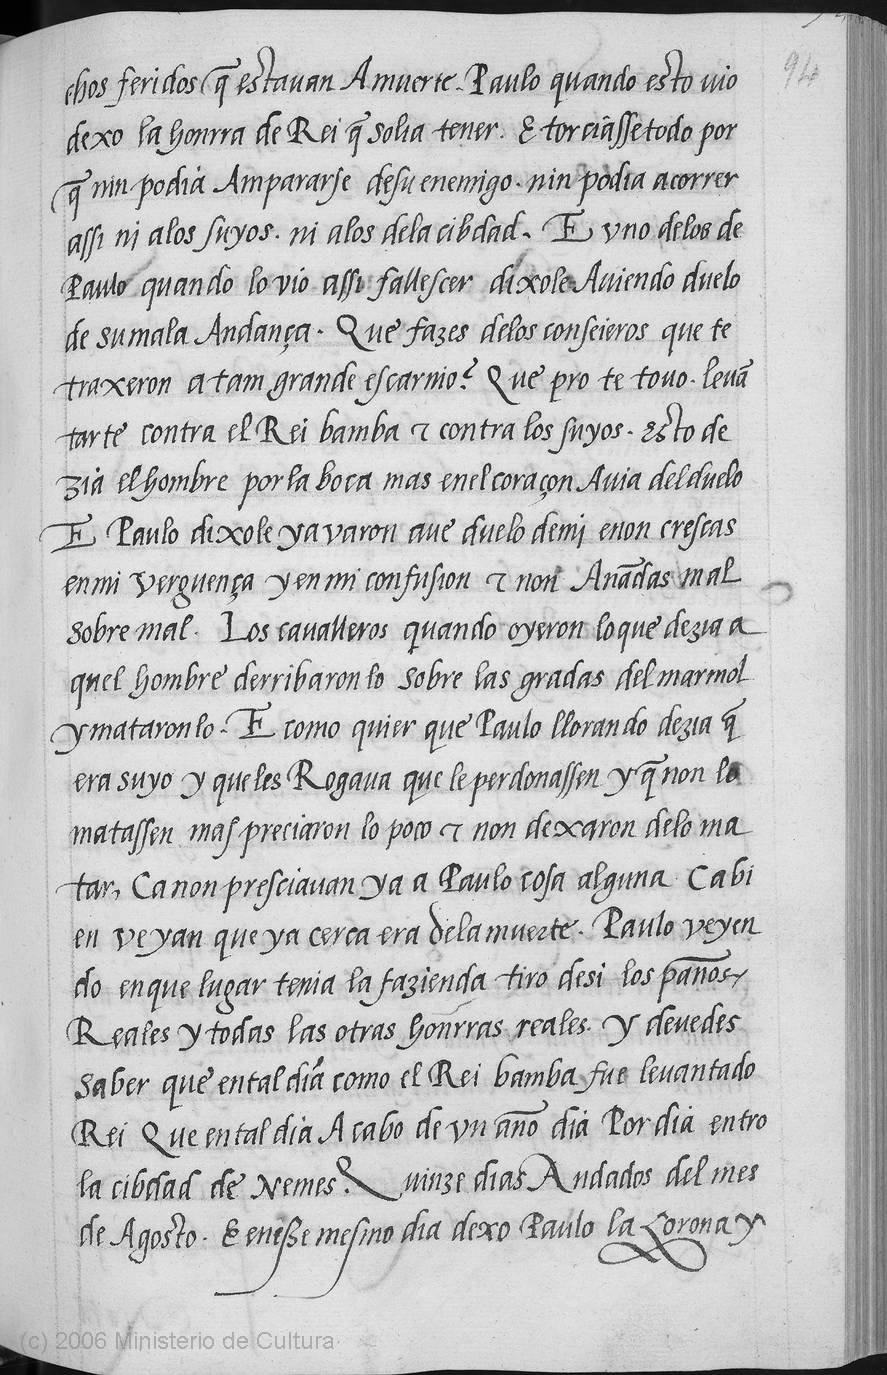 94
chos feridos q̄ estavan A muerte. Paulo quando esto vio
dexo la honrra de Rei q̄ solia tener. E torciasse todo por
q̄ nin podia Ampararse de su enemigo. nin podia acorrer
assi ni a los suyos. ni a los de la cibdad. E vno de los de
Paulo quando lo vio assi fallescer dixole Auiendo duelo
de su mala Andança. Que fazes de los conseieros que te
traxeron a tam grande escarnio? Que pro te touo. leuā
tarte contra el Rei bamba ⁊ contra los suyos. Esto de
zia el hombre por la boca mas en el coraçon Auia del duelo
E Paulo dixole ya varon aue duelo de mi e non crescas
en mi verguença y en mi confusion ⁊ non Anādas mal
sobre mal. Los caualleros quando oyeron lo que dezia a
quel hombre derribaron lo sobre las gradas del marmol
y mataron lo. E como quier que Paulo llorando dezia q̄
era suyo y que les Rogaua que le perdonassen y q̄ non lo
matassen mas preciaron lo poco ⁊ non dexaron de lo ma
tar, Ca non presciauan ya a Paulo cosa alguna Ca bi
en veyan que ya cerca era de la muerte. Paulo veyen
do en que lugar tenia la fazienda tiro desi los paños
Reales y todas las otras honrras reales. y deuedes
saber que en tal dia como el Rei bamba fue leuantado
Rei Que en tal dia A cabo de vn año dia Por dia entro
la cibdad de Nemes? Quinze dias Andados del mes
de Agosto. E en esse mesmo dia dexo Paulo la Corona y
(c) 2006 Ministerio de Cultura